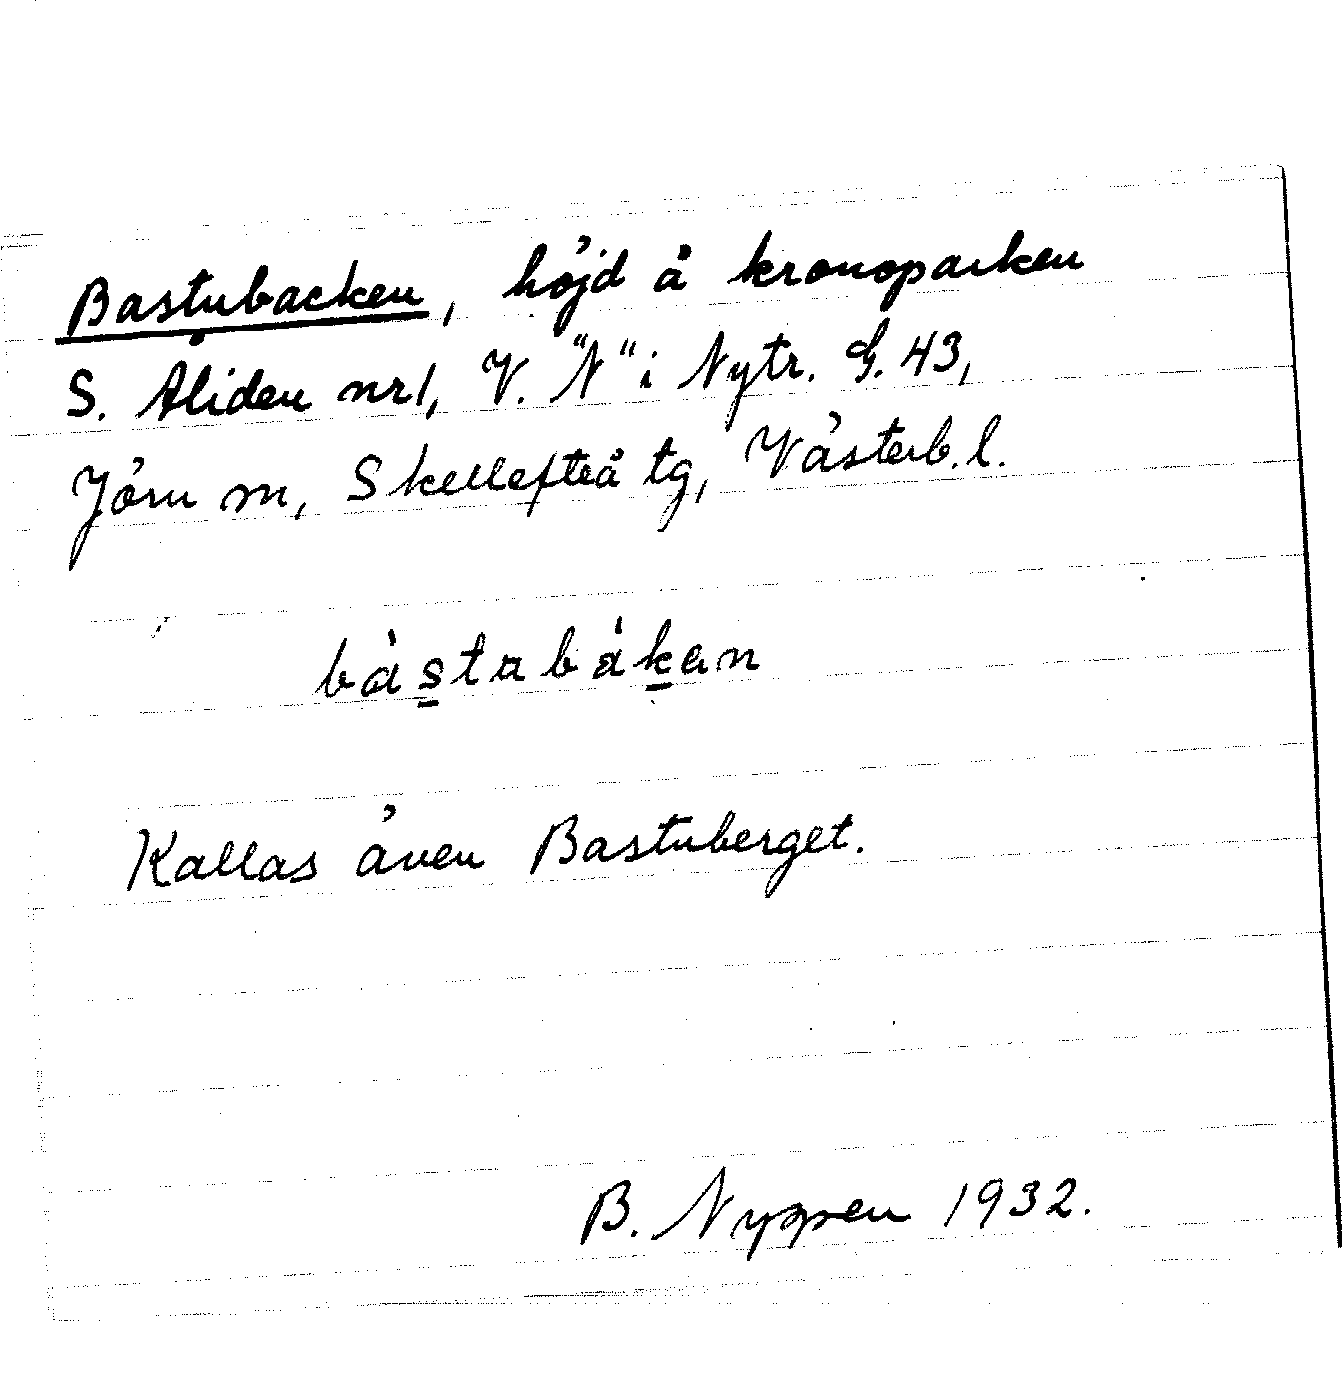 Bastubacken, höjd å kronoparken
S. Åliden nr 1, V. "N" i Nytr. G. 43,
Jörn sn, Skellefteå tg, Västerb. l.
bàstabákan
Kallas även Bastuberget.
B. Nyppen 1932.